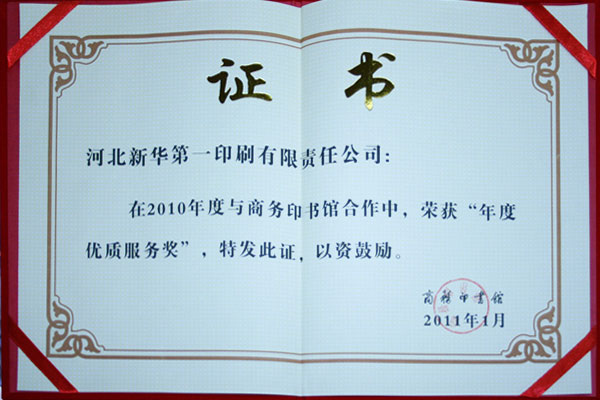 证书
河北新华第一印刷有限责任公司：
在2010年度与商务印书馆合作中，荣获“年度
优质服务奖”，特发此证，以资鼓励。
商务印书馆
2011年1月